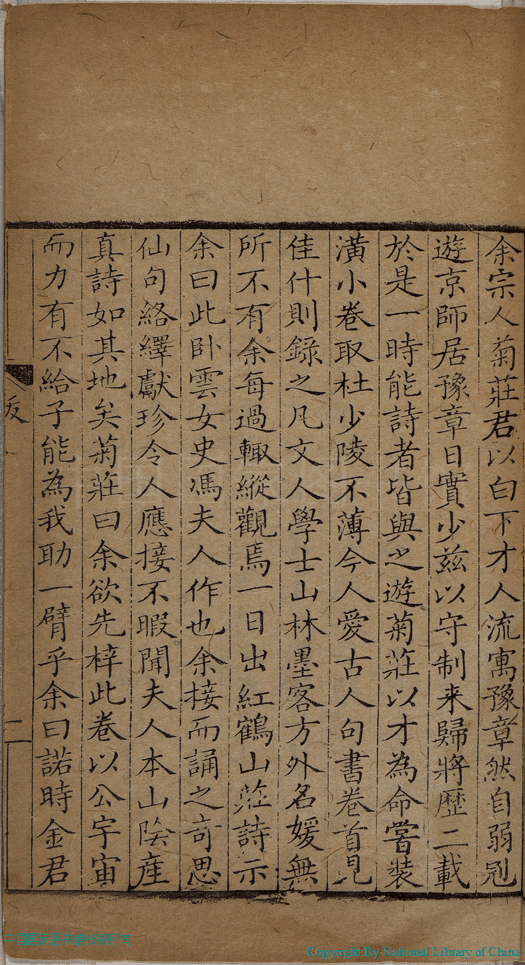 余宗人菊莊君以白下才人流寓豫章然自弱冠
遊京師居豫章日實少兹以守制来歸將歷二載
於是一時能詩者皆與之遊菊莊以才為命嘗裝
潢小卷取杜少陵不薄今人愛古人句書卷首見
佳什則錄之凡文人學士山林墨客方外名媛無
所不有余每過輙縱觀焉一日出紅鶴山莊詩示
余曰此卧雲女史馮夫人作也余接而誦之奇思
仙句絡繹獻珍令人應接不暇聞夫人本山陰產
真詩如其地矣菊莊曰余欲先梓此卷以公宇宙
而力有不給子能為我助一臂乎余曰諾時金君
跋
二
Copyright By National Library of China